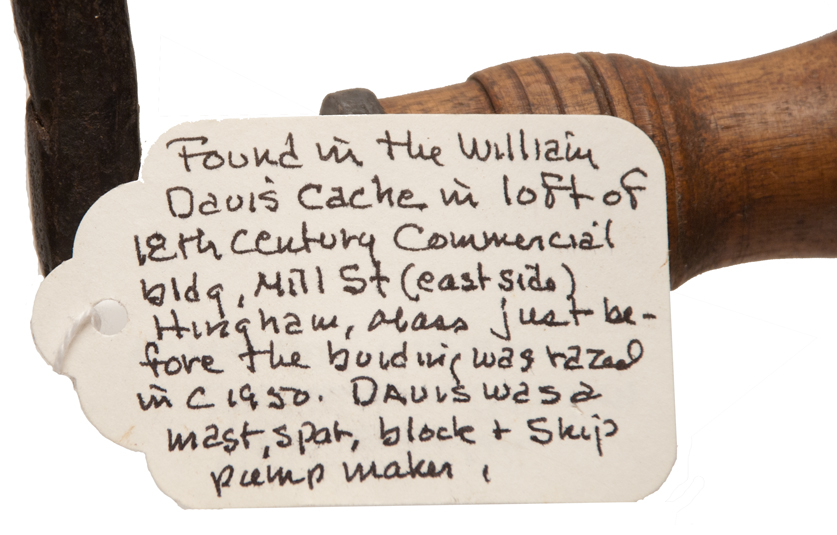 Found in the William
Davis Cache in loft of
18th Century Commercial
bldg, Mill St (east side)
Hingham, Mass just be-
fore the building was razed
in C 1950. DAVIS was a
mast, spar, block + Ship
pump maker.